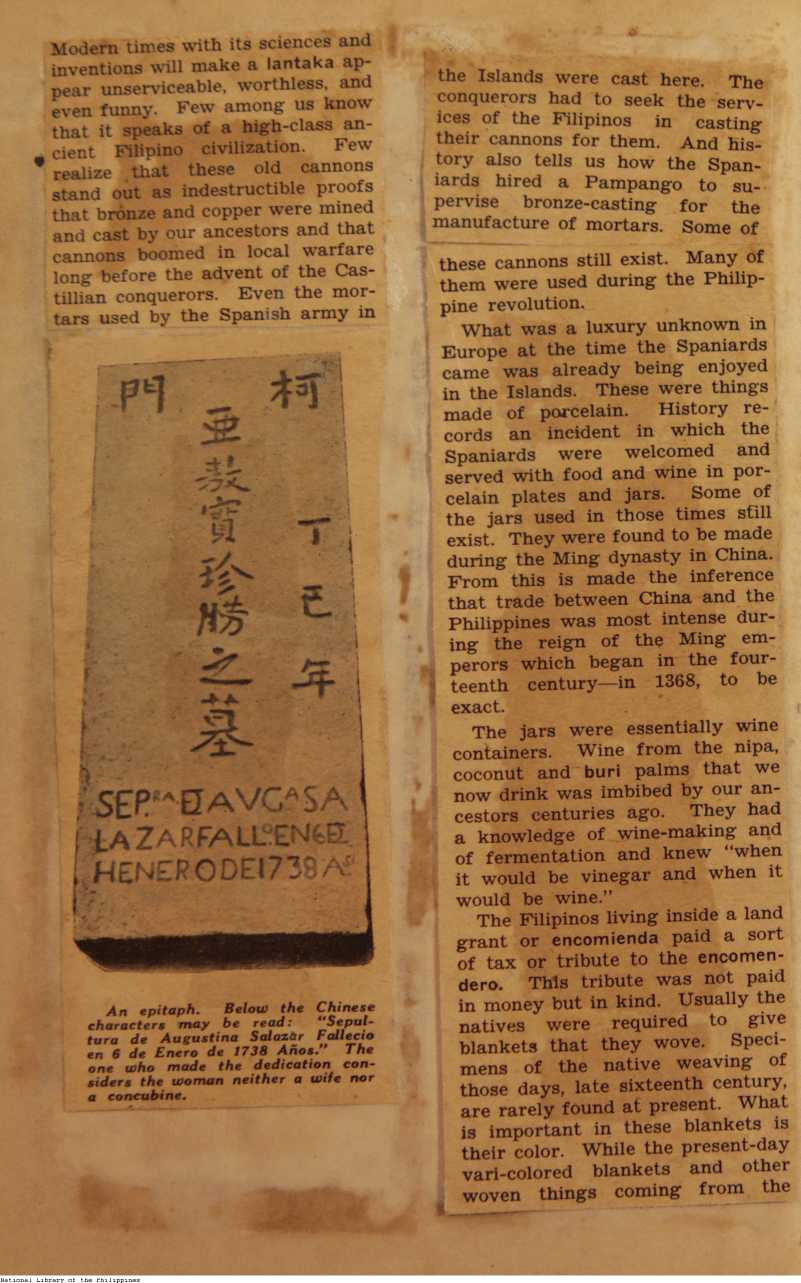 Modern times with its sciences and
inventions will make a lantaka ap-
pear unserviceable, worthless, and
even funny. Few among us know
that it speaks of a high-class an-
cient Filipino civilization. Few
realize that these old cannons
stand out as indestructible proofs
that bronze and copper were mined
and cast by our ancestors and that
cannons boomed in local warfare
long before the advent of the Cas-
tillian conquerors. Even the mor-
tars used by the Spanish army in
柯
門
丁巳年
亜
寳珍勝之墓
SEP.RA D AVGA SA
LAZAR FALLO EN 6 DE
HENERO DE 1738 AS
An epitaph. Below the Chinese
characters may be read: "Sepul-
tura de Augustina Salazar Fallecio
en 6 de Enero de 1738 Años." The
one who made the dedication con-
siders the woman neither a wife nor
a concubine.
the Islands were cast here. The
conquerors had to seek the serv-
ices of the Filipinos in casting
their cannons for them. And his-
tory also tells us how the Span-
iards hired a Pampango to su-
pervise bronze-casting for the
manufacture of mortars. Some of
these cannons still exist. Many of
them were used during the Philip-
pine revolution.
What was a luxury unknown in
Europe at the time the Spaniards
came was already being enjoyed
in the Islands. These were things
made of porcelain. History re-
cords an incident in which the
Spaniards were welcomed and
served with food and wine in por-
celain plates and jars. Some of
the jars used in those times still
exist. They were found to be made
during the Ming dynasty in China.
From this is made the inference
that trade between China and the
Philippines was most intense dur-
ing the reign of the Ming em-
perors which began in the four-
teenth century—in 1368, to be
exact.
The jars were essentially wine
containers. Wine from the nipa,
coconut and buri palms that we
now drink was imbibed by our an-
cestors centuries ago. They had
a knowledge of wine-making and
of fermentation and knew "when
it would be vinegar and when it
would be wine."
The Filipinos living inside a land
grant or encomienda paid a sort
of tax or tribute to the encomen-
dero. This tribute was not paid
in money but in kind. Usually the
natives were required to give
blankets that they wove. Speci-
mens of the native weaving of
those days, late sixteenth century,
are rarely found at present. What
is important in these blankets is
their color. While the present-day
vari-colored blankets and other
woven things coming from the
National Library of the Philippines